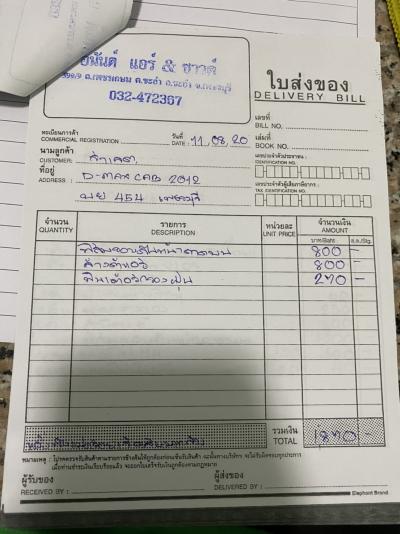 อนันต์ แอร์ & ซาวด์
ถ.เพชรเกษม ต.ชะอำ อ.ชะอำ จ.เพชรบุรี
032-472367
ใบส่งของ
DELIVERY BILL
เลขที่
BILL NO.
ทะเบียนการค้า
COMMERCIAL REGISTRATION
วันที่
DATE : 11.08.20
เล่มที่
BOOK NO.
นามลูกค้า
CUSTOMER:
เลขประจำตัวประชาชน :
IDENTIFICATION NO.
ที่อยู่
ADDRESS : D-MAX CAB 2012
454 เพชรบุรี
เลขประจำตัวผู้เสียภาษีอากร :
TAX IDENTIFICATION NO.
จำนวน
QUANTITY
รายการ
DESCRIPTION
หน่วยละ
UNIT PRICE
จำนวนเงิน
AMOUNT
บาท/Baht
ส.ต./Stg.
800 -
ล้างตู้แอร์ 800 -
270 -
รวมเงิน
TOTAL
1870
หมายเหตุ : โปรดตรวจรับสินค้าตามรายการข้างต้นให้ถูกต้องก่อนเซ็นรับสินค้า ฉะนั้นทางบริษัทฯ จะไม่รับผิดชอบทุกประการ
เมื่อท่านชำระเงินเรียบร้อยแล้ว จะออกใบเสร็จรับเงินถูกต้องตามกฎหมาย
ผู้รับของ
RECEIVED BY :
ผู้ส่งของ
DELIVERED BY :
Elephant Brand